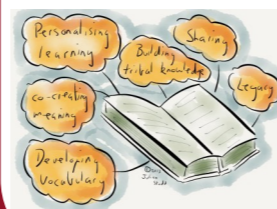 Personalising
learning
Building
tribal knowledge
Sharing
Legacy
co-creating
meaning
Developing
Vocabulary